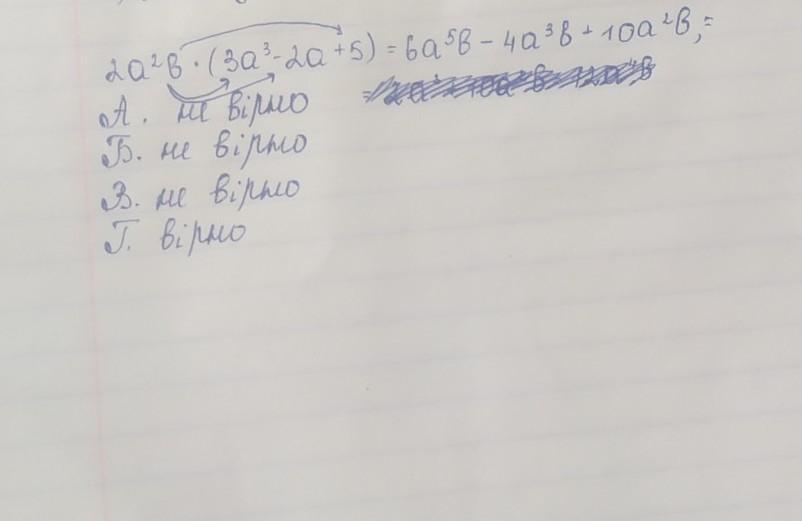 2а²в · (3а³ - 2а + 5) = 6а⁵в - 4а³в + 10а²в; =
=
А. не вірно
Б. не вірно
В. не вірно
Г. вірно